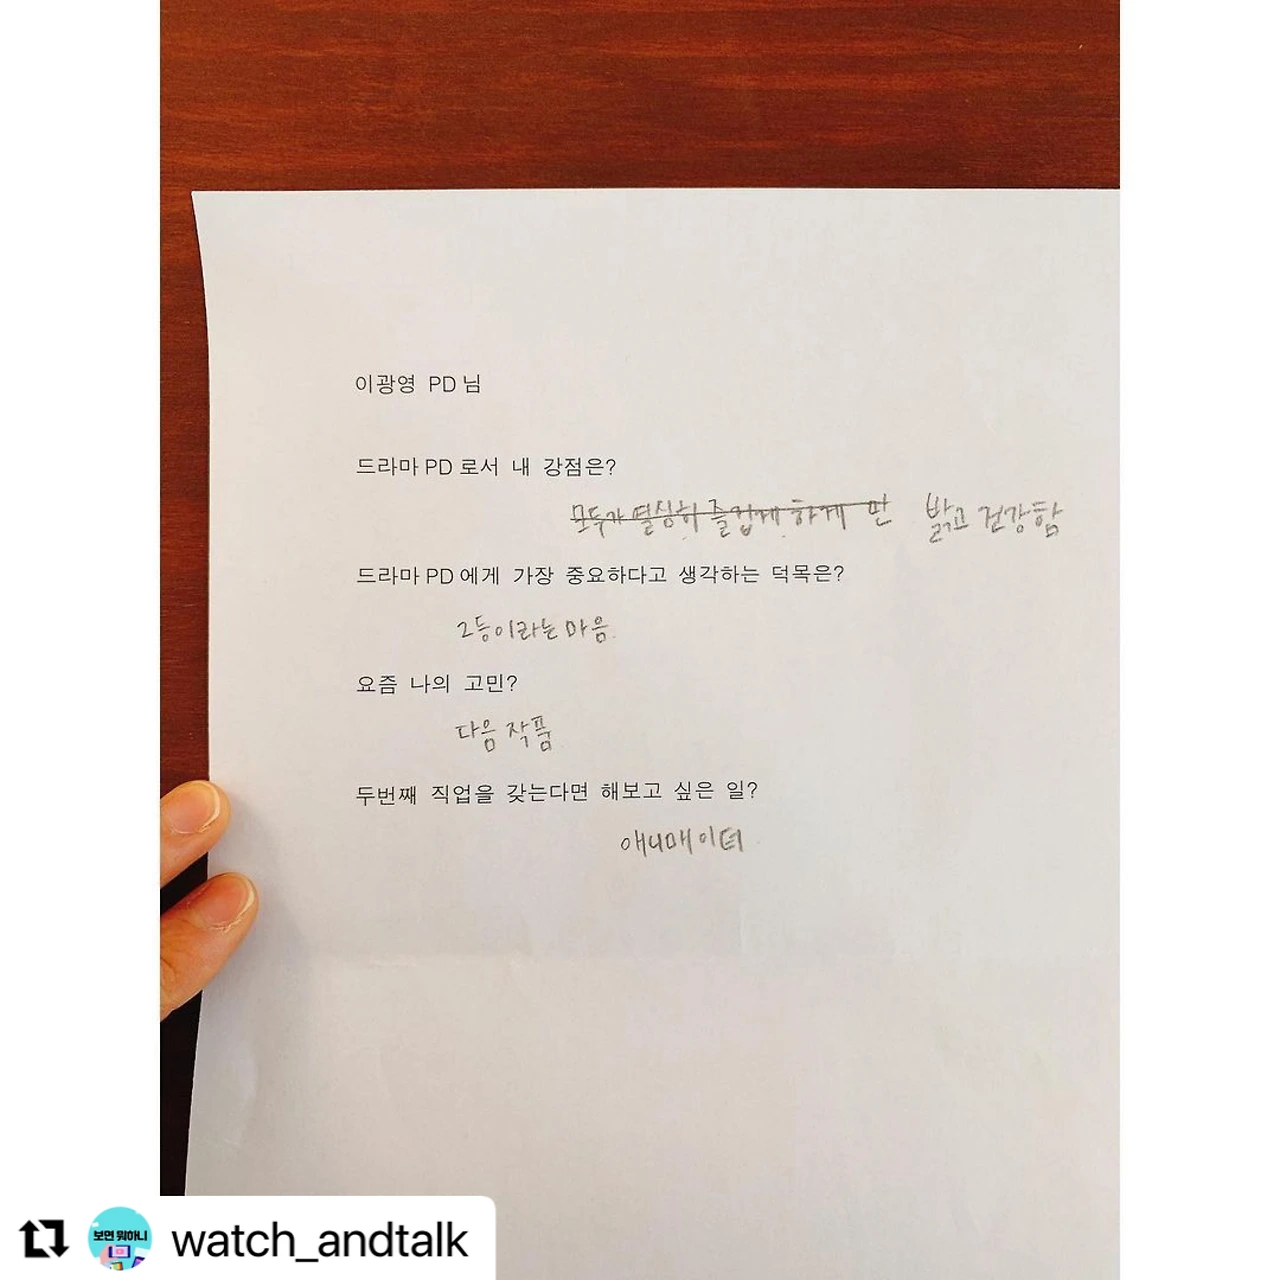 이광영 PD님
드라마PD로서 내 강점은?
모두가 열심히 즐겁게 하게 만 밝고 건강함
드라마PD에게 가장 중요하다고 생각하는 덕목은?
2등이라는 마음.
요즘 나의 고민?
다음 작품
두번째 직업을 갖는다면 해보고 싶은 일?
애니메이터
보면 뭐하니
watch_andtalk